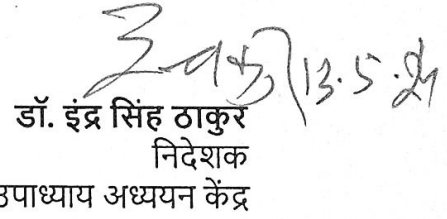 13.5.24
डॉ. इंद्र सिंह ठाकुर
निदेशक
उपाध्याय अध्ययन केंद्र